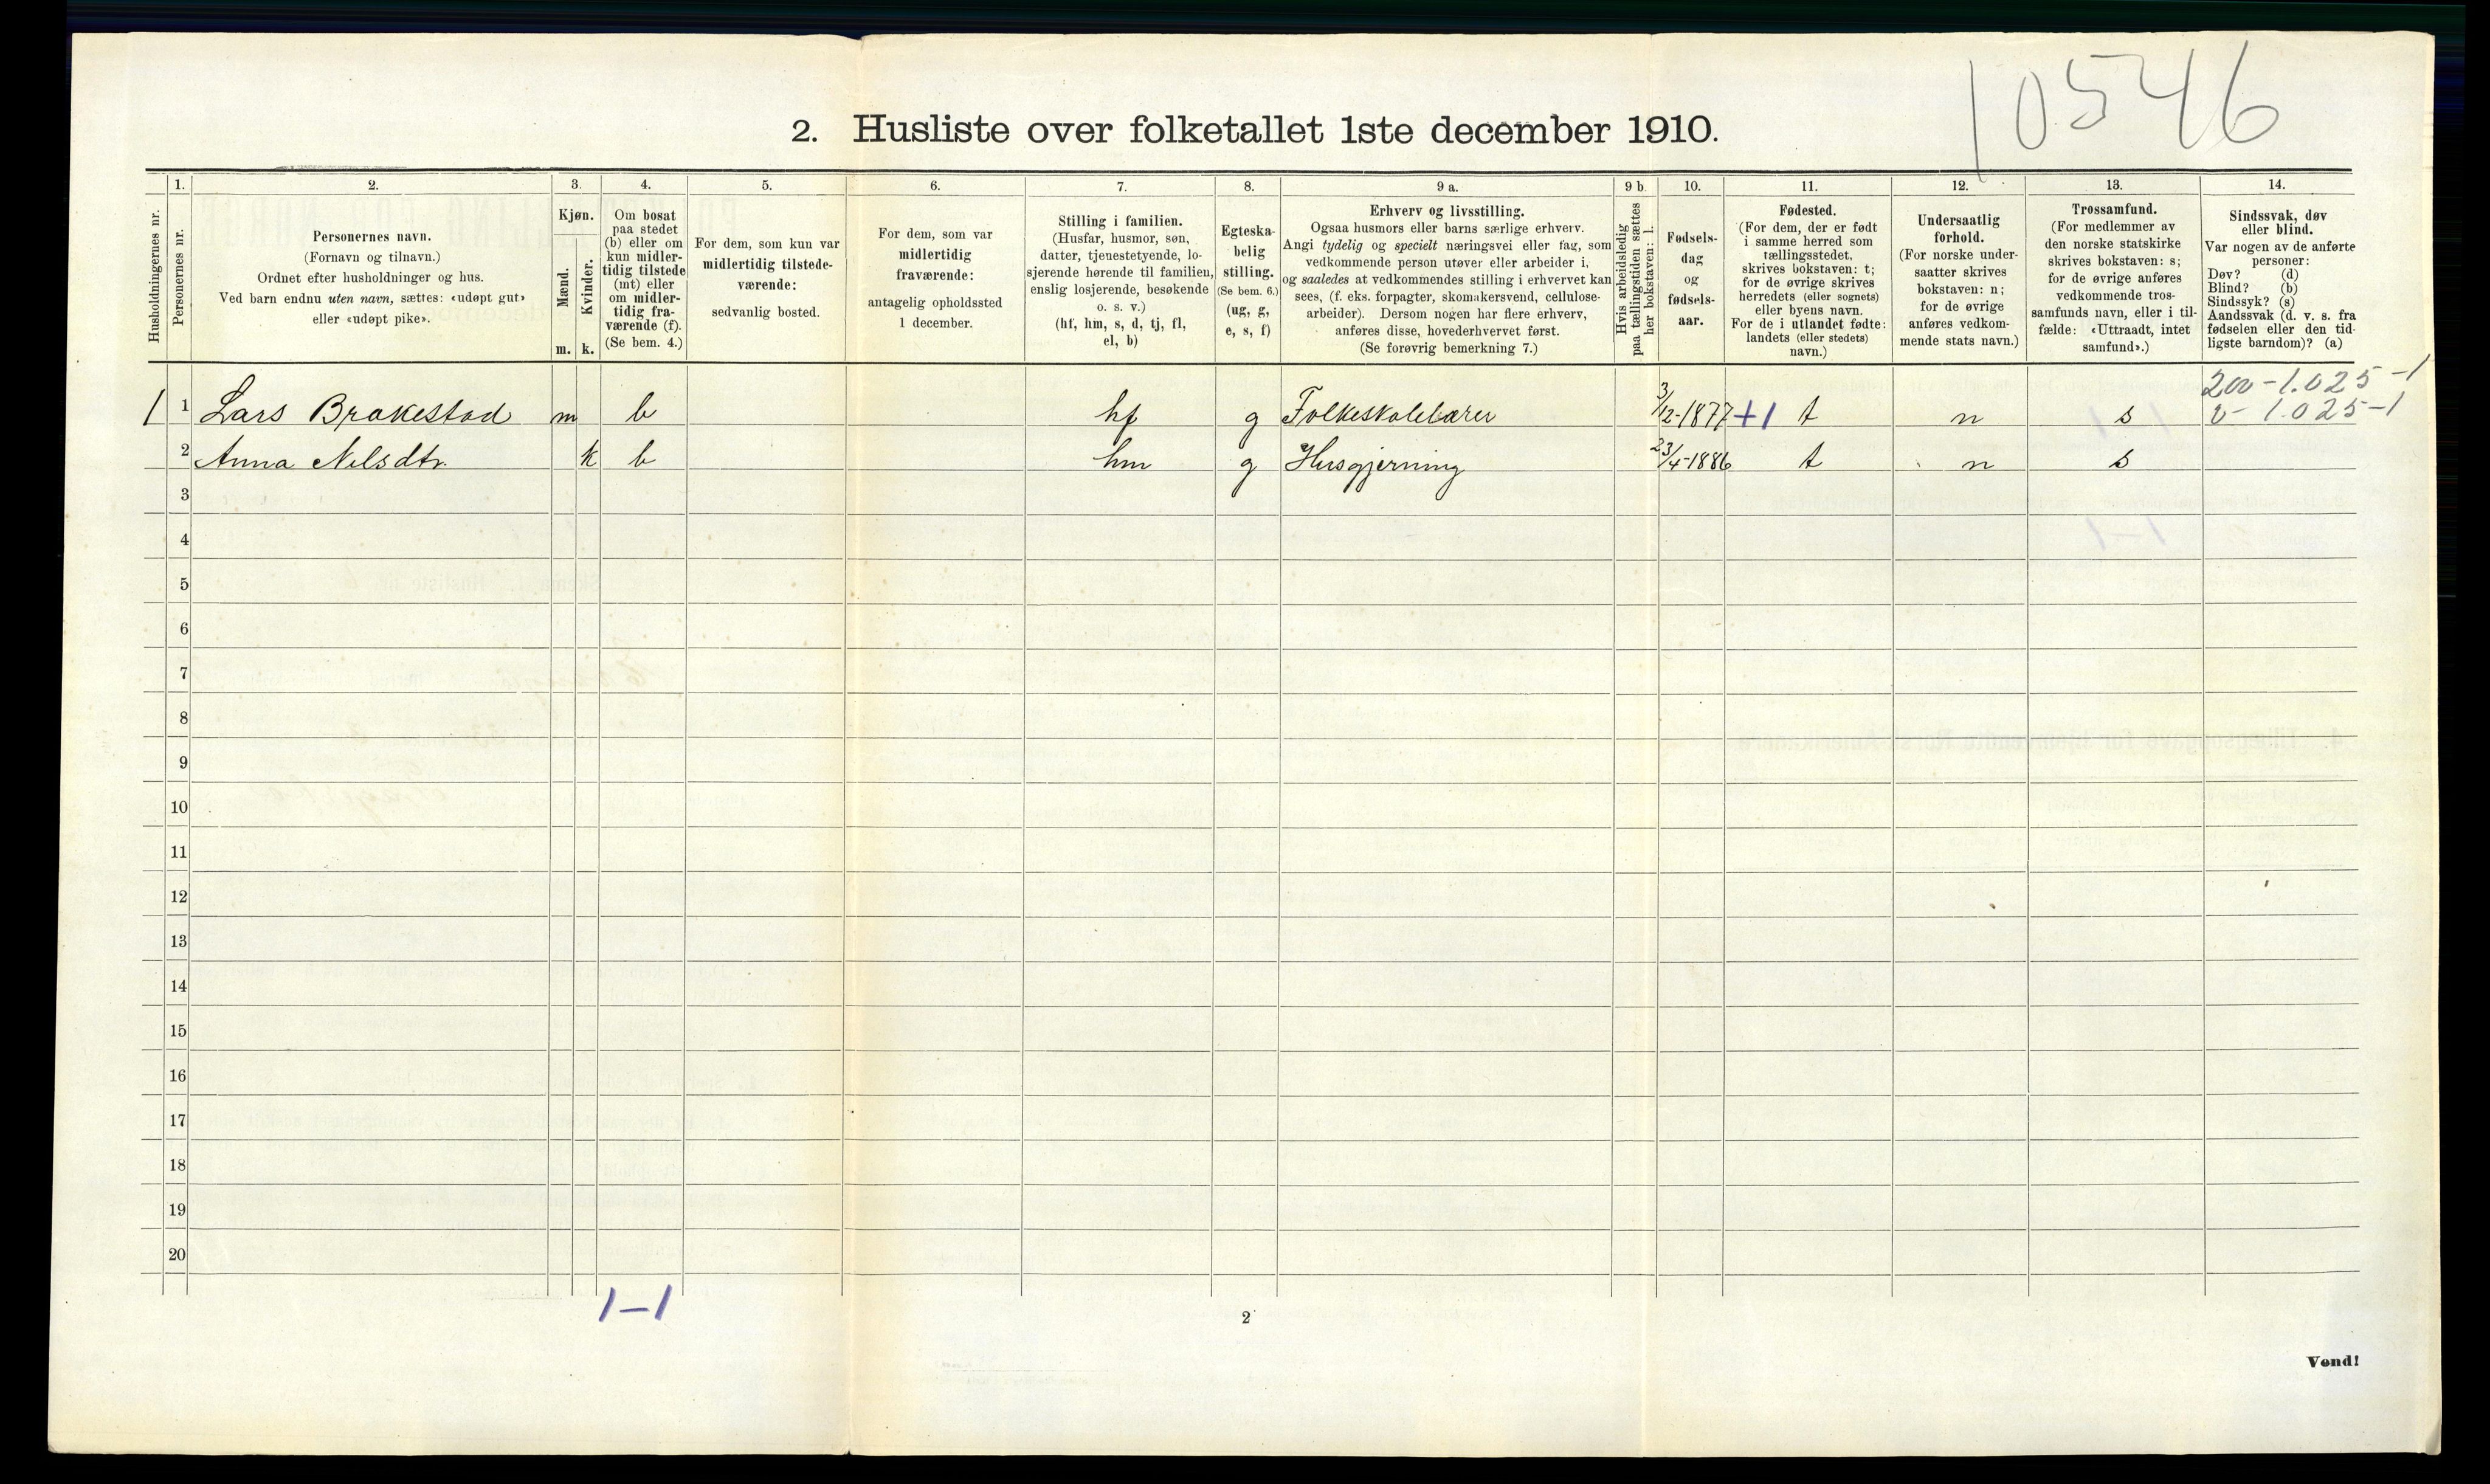 10546
2. Husliste over folketallet 1ste december 1910.
Husholdningernes nr.
1.
Personernes nr.
2.
Personernes navn.
(Fornavn og tilnavn.)
Ordnet efter husholdninger og hus.
Ved barn endnu uten navn, sættes: «udøpt gut»
eller «udøpt pike».
3.
Kjøn.
Mænd.
Kvinder.
m. k.
4.
Om bosat
paa stedet
(b) eller om
kun midler-
tidig tilstede
(mt) eller
om midler-
tidig fra-
værende (f).
(Se bem. 4.)
5.
For dem, som kun var
midlertidig tilstede-
værende:
sedvanlig bosted.
6.
For dem, som var
midlertidig
fraværende:
antagelig opholdssted
1 december.
7.
Stilling i familien.
(Husfar, husmor, søn,
datter, tjenestetyende, lo-
sjerende hørende til familien,
enslig losjerende, besøkende
o. s. v.)
(hf, hm, s, d, tj, fl,
el, b)
8.
Egteska-
belig
stilling.
(Se bem. 6.)
(ug, g,
e, s, f)
9 a.
Erhverv og livsstilling.
Ogsaa husmors eller barns særlige erhverv.
Angi tydelig og specielt næringsvei eller fag, som
vedkommende person utøver eller arbeider i,
og saaledes at vedkommendes stilling i erhvervet kan
sees, (f. eks. forpagter, skomakersvend, cellulose-
arbeider). Dersom nogen har flere erhverv,
anføres disse, hovederhvervet først.
(Se forøvrig bemerkning 7.)
9 b.
Hvis arbeidsledig
paa tællingstiden sættes
her bokstaven: l.
10.
Fødsels-
dag
og
fødsels-
aar.
11.
Fødested.
(For dem, der er født
i samme herred som
tællingsstedet,
skrives bokstaven: t;
for de øvrige skrives
herredets (eller sognets)
eller byens navn.
For de i utlandet fødte:
landets (eller stedets)
navn.)
12.
Undersaatlig
forhold.
(For norske under-
saatter skrives
bokstaven: n;
for de øvrige
anføres vedkom-
mende stats navn.)
13.
Trossamfund.
(For medlemmer av
den norske statskirke
skrives bokstaven: s;
for de øvrige anføres
vedkommende tros-
samfunds navn, eller i til-
fælde: «Uttraadt, intet
samfund».)
14.
Sindssvak, døv
eller blind.
Var nogen av de anførte
personer:
Døv? (d)
Blind? (b)
Sindssyk? (s)
Aandssvak (d. v. s. fra
fødselen eller den tid-
ligste barndom)? (a)
200-1.025-1
1 1 Lars Brakestad m b hf g Folkeskolelærer 3/12-1877 +1 t n s 0-1.025-1
2 Anna Nilsdtr. k b hm g Husgjerning 23/4-1886 t n s
3
4
5
6
7
8
9
10
11
12
13
14
15
16
17
18
19
20
1-1
2
Vend!